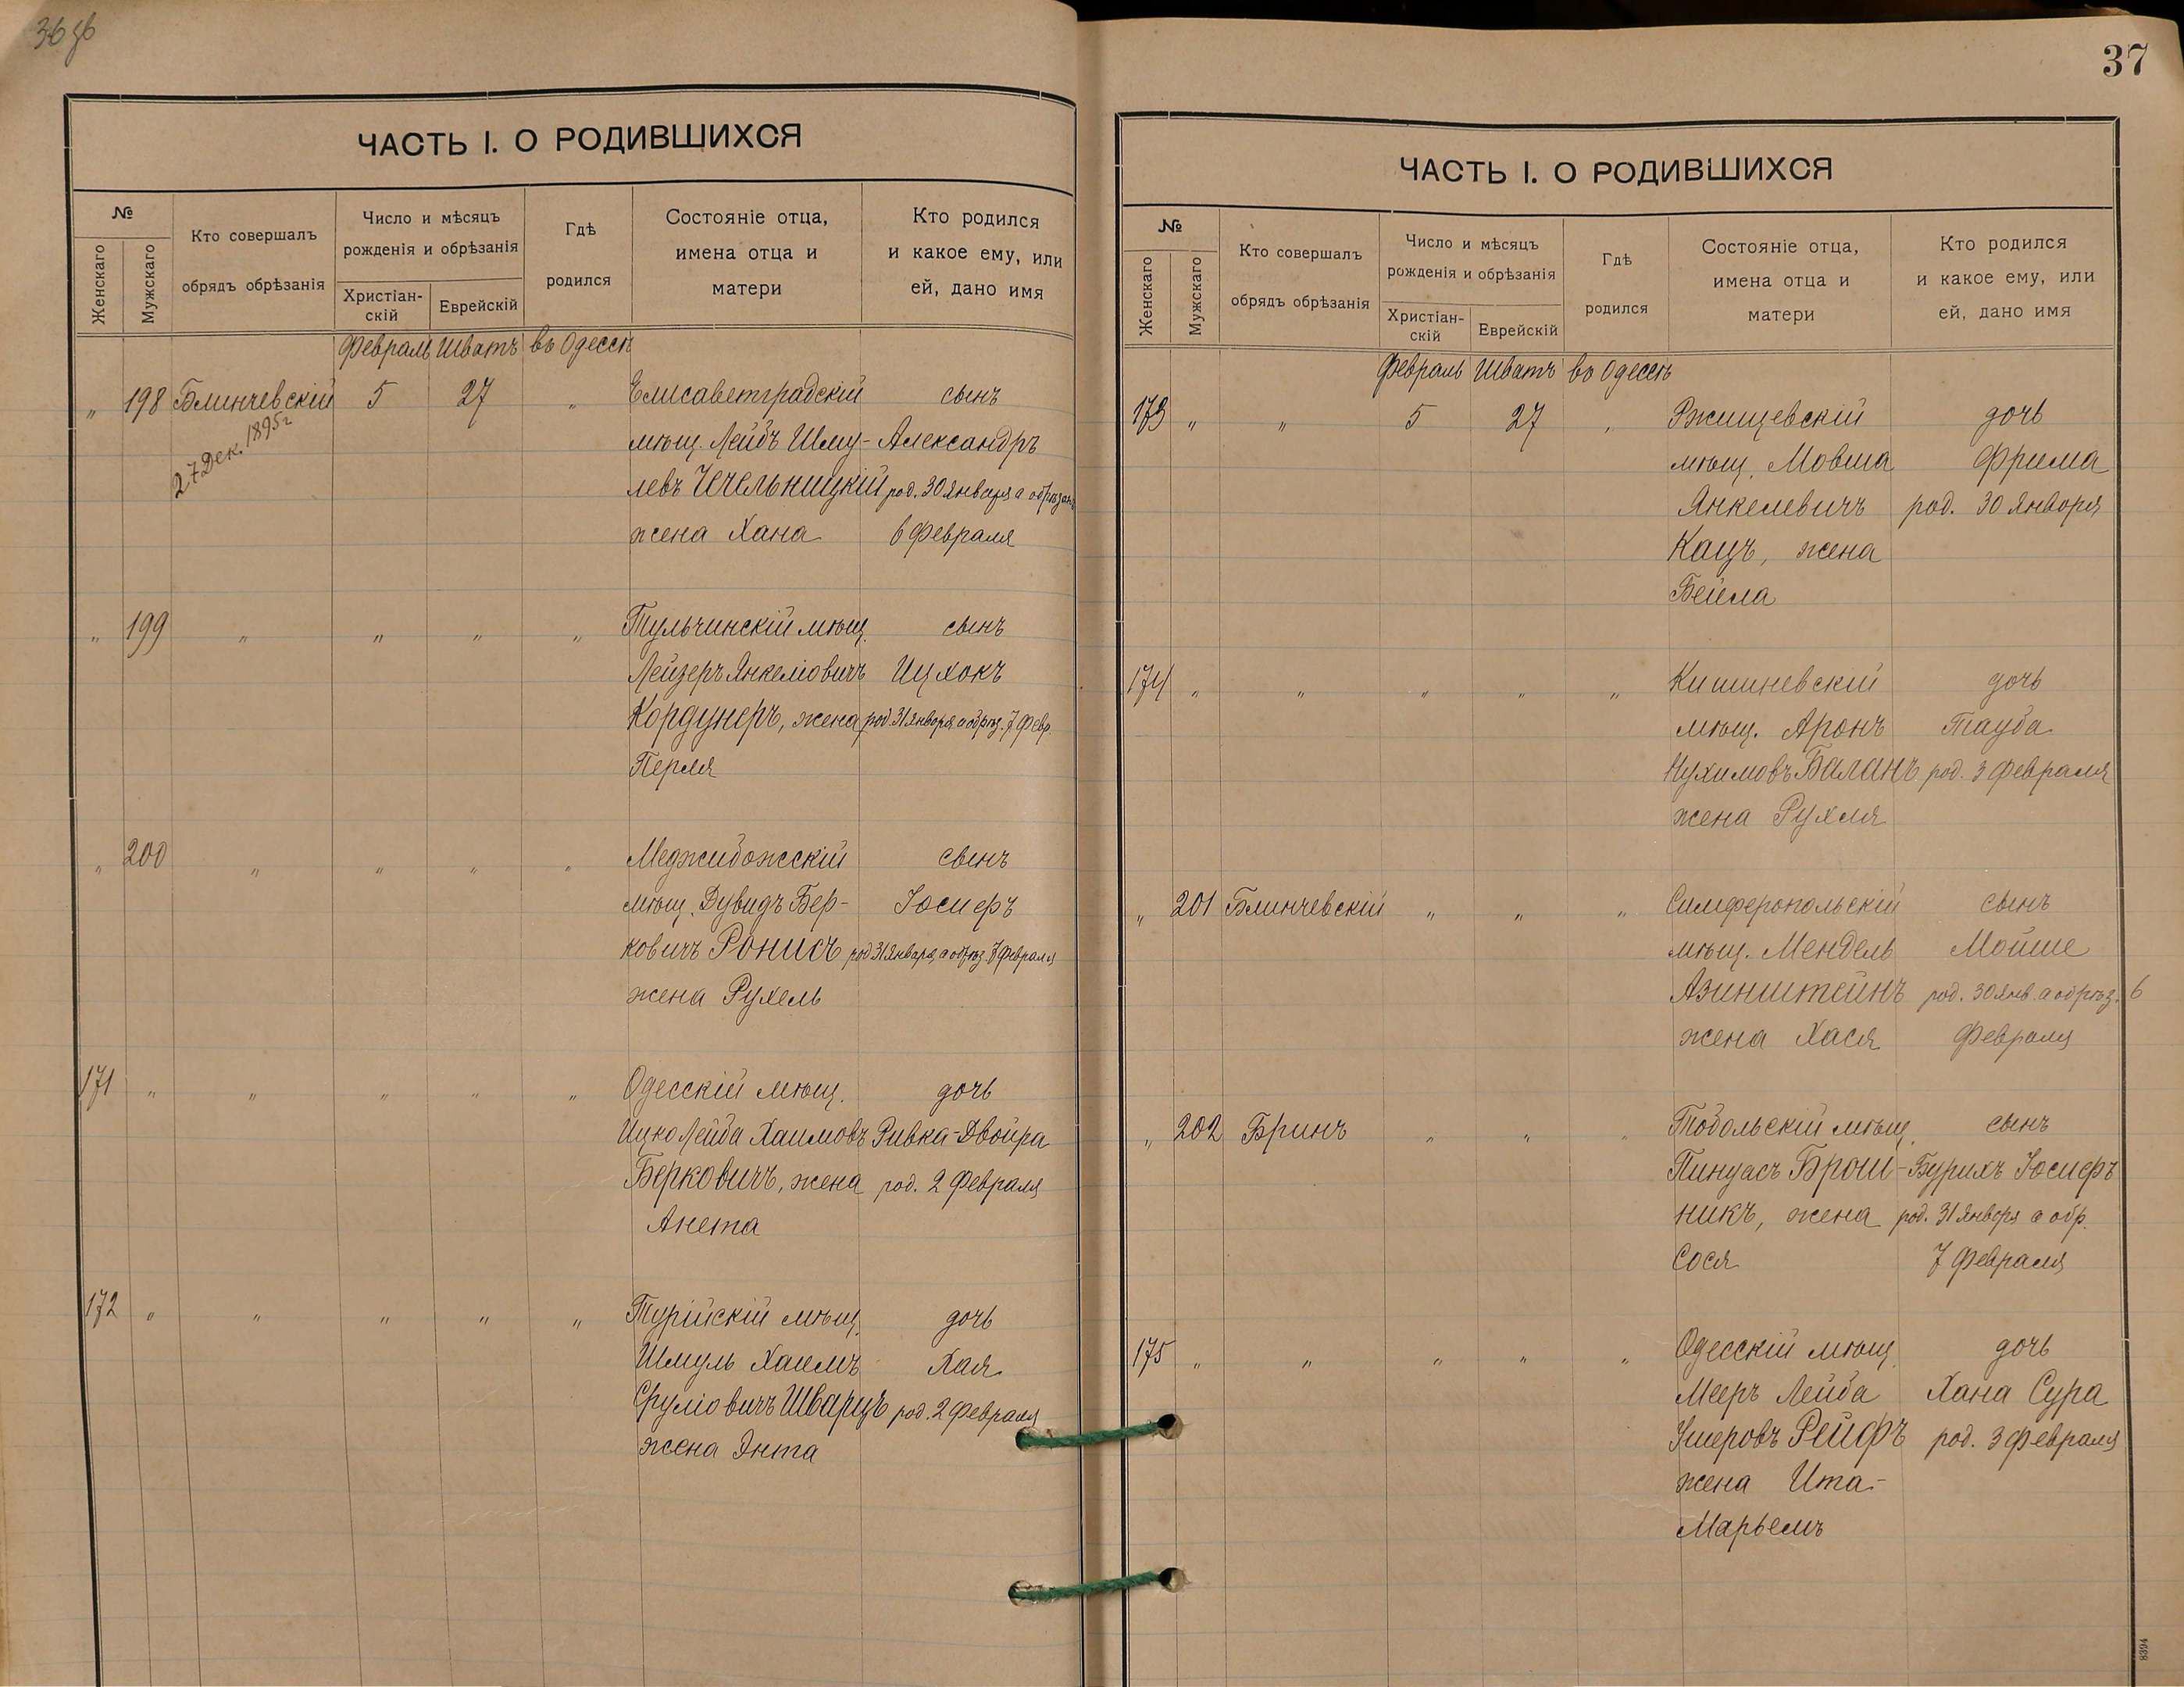 36 зв
ЧАСТЬ I. О РОДИВШИХСЯ
№
Женскаго
Мужскаго
Кто совершалъ
обрядъ обрѣзанія
Число и мѣсяцъ
рожденія и обрѣзанія
Христіан-
скій
Еврейскій
Гдѣ
родился
Состояніе отца,
имена отца и
матери
Кто родился
и какое ему, или
ей, дано имя
Февраль Шватъ въ Одессѣ
" 198 Блинчевскій 5 27 " Елисаветградскій сынъ
27 Дек. 1895 г
мѣщ. Лейбъ Шму- Александръ
левъ Чечельницкій род. 30 Января а обрѣзанъ
жена Хана 6 Февраля
" 199 " " " " Тульчинскій мѣщ. сынъ
Лейзеръ Янкеліовичъ Ицхокъ
Кордунеръ, жена род. 31 Января, а обрѣз. 7 Февр.
Перля
" 200 " " " " Меджибожскій сынъ
мѣщ. Дувидъ Бер- Іосифъ
ковичъ Ронисъ род 31 Января, а обрѣз. 7 Февраля
жена Рухель
171 " " " " " Одесскій мѣщ. дочь
Ицко Лейба Хаимовъ Ривка-Двойра
Берковичъ, жена род. 2 Февраля
Анета
172 " " " " " Турійскій мѣщ. дочь
Шмуль Хаимъ Хая
Сруліовичъ Шварцъ род. 2 Февраля
жена Энта
37
ЧАСТЬ I. О РОДИВШИХСЯ
№
Женскаго
Мужскаго
Кто совершалъ
обрядъ обрѣзанія
Число и мѣсяцъ
рожденія и обрѣзанія
Христіан-
скій
Еврейскій
Гдѣ
родился
Состояніе отца,
имена отца и
матери
Кто родился
и какое ему, или
ей, дано имя
Февраль Шватъ въ Одессѣ
173 " " 5 27 " Ржищевскій дочь
мѣщ. Мовша Фрима
Янкелевичъ род. 30 Января
Кацъ, жена
Бейла
174 " " " " " Кишиневскій дочь
мѣщ. Аронъ Тауба
Нухимовъ Баланъ род. 3 Февраля
жена Рухля
" 201 Блинчевскій " " " Симферопольскій сынъ
мѣщ. Мендель Мойше
Азинштейнъ род. 30 Янв. а обрѣз. 6
жена Хася Февраля
" 202 Бринъ " " " Тобольскій мѣщ. сынъ
Пинуасъ Брош- Бурихъ Іосифъ
никъ, жена род. 31 Января а обр.
Сося 7 Февраля
175 " " " " " Одесскій мѣщ. дочь
Мееръ Лейба Хана Сура
Ушеровъ Рейфъ род. 3 Февраля
жена Ита-
Марьемъ
8394